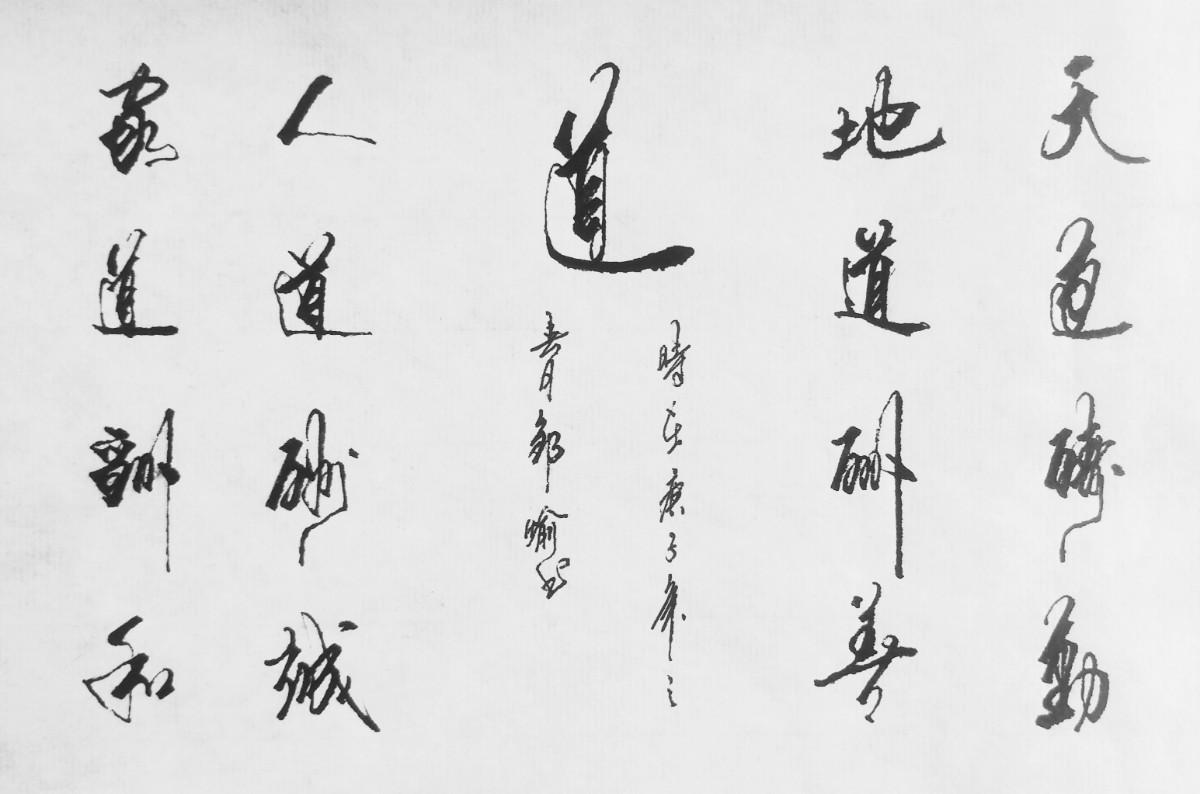 天道酬勤
地道酬善
道
時在庚子年之
春月書
人道酬誠
家道酬和